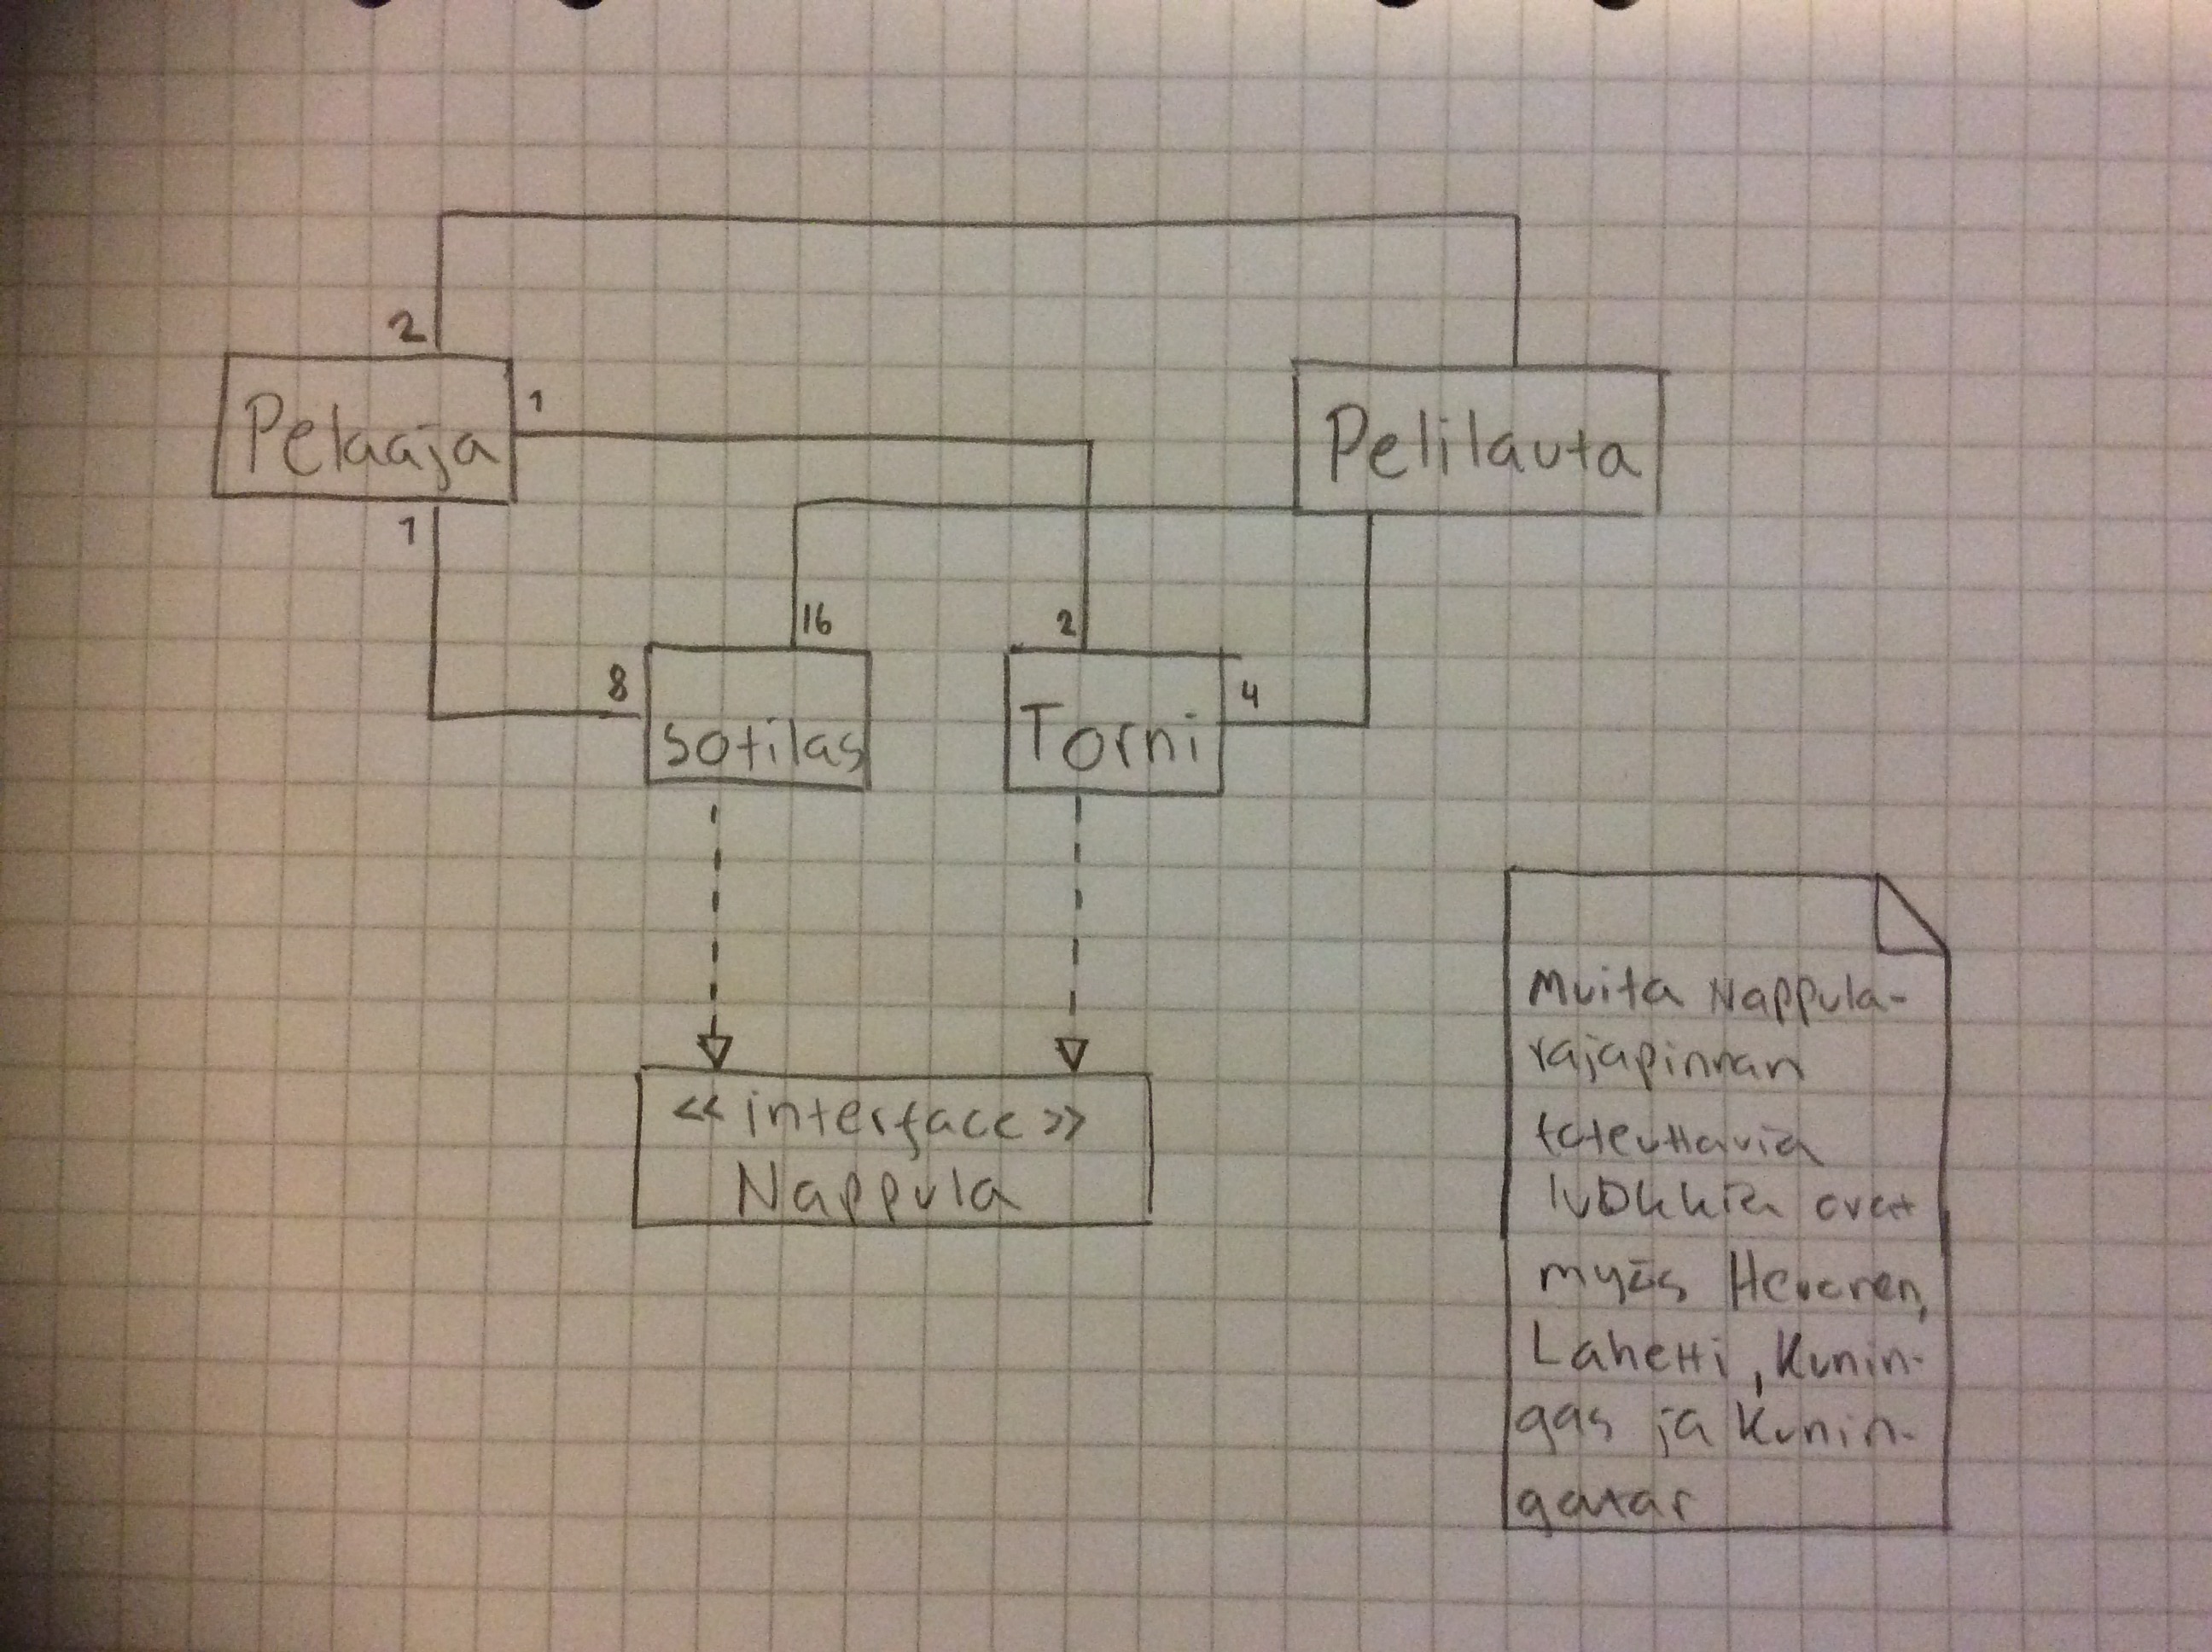 2
Pelaaja
1
Pelilauta
1
16
2
8
4
Sotilas
Torni
<< interface >>
Nappula
Muita Nappula-
rajapinnan
toteuttavia
luokkia ovat
myös Hevonen,
Lähetti, Kunin-
gas ja Kunin-
gatar